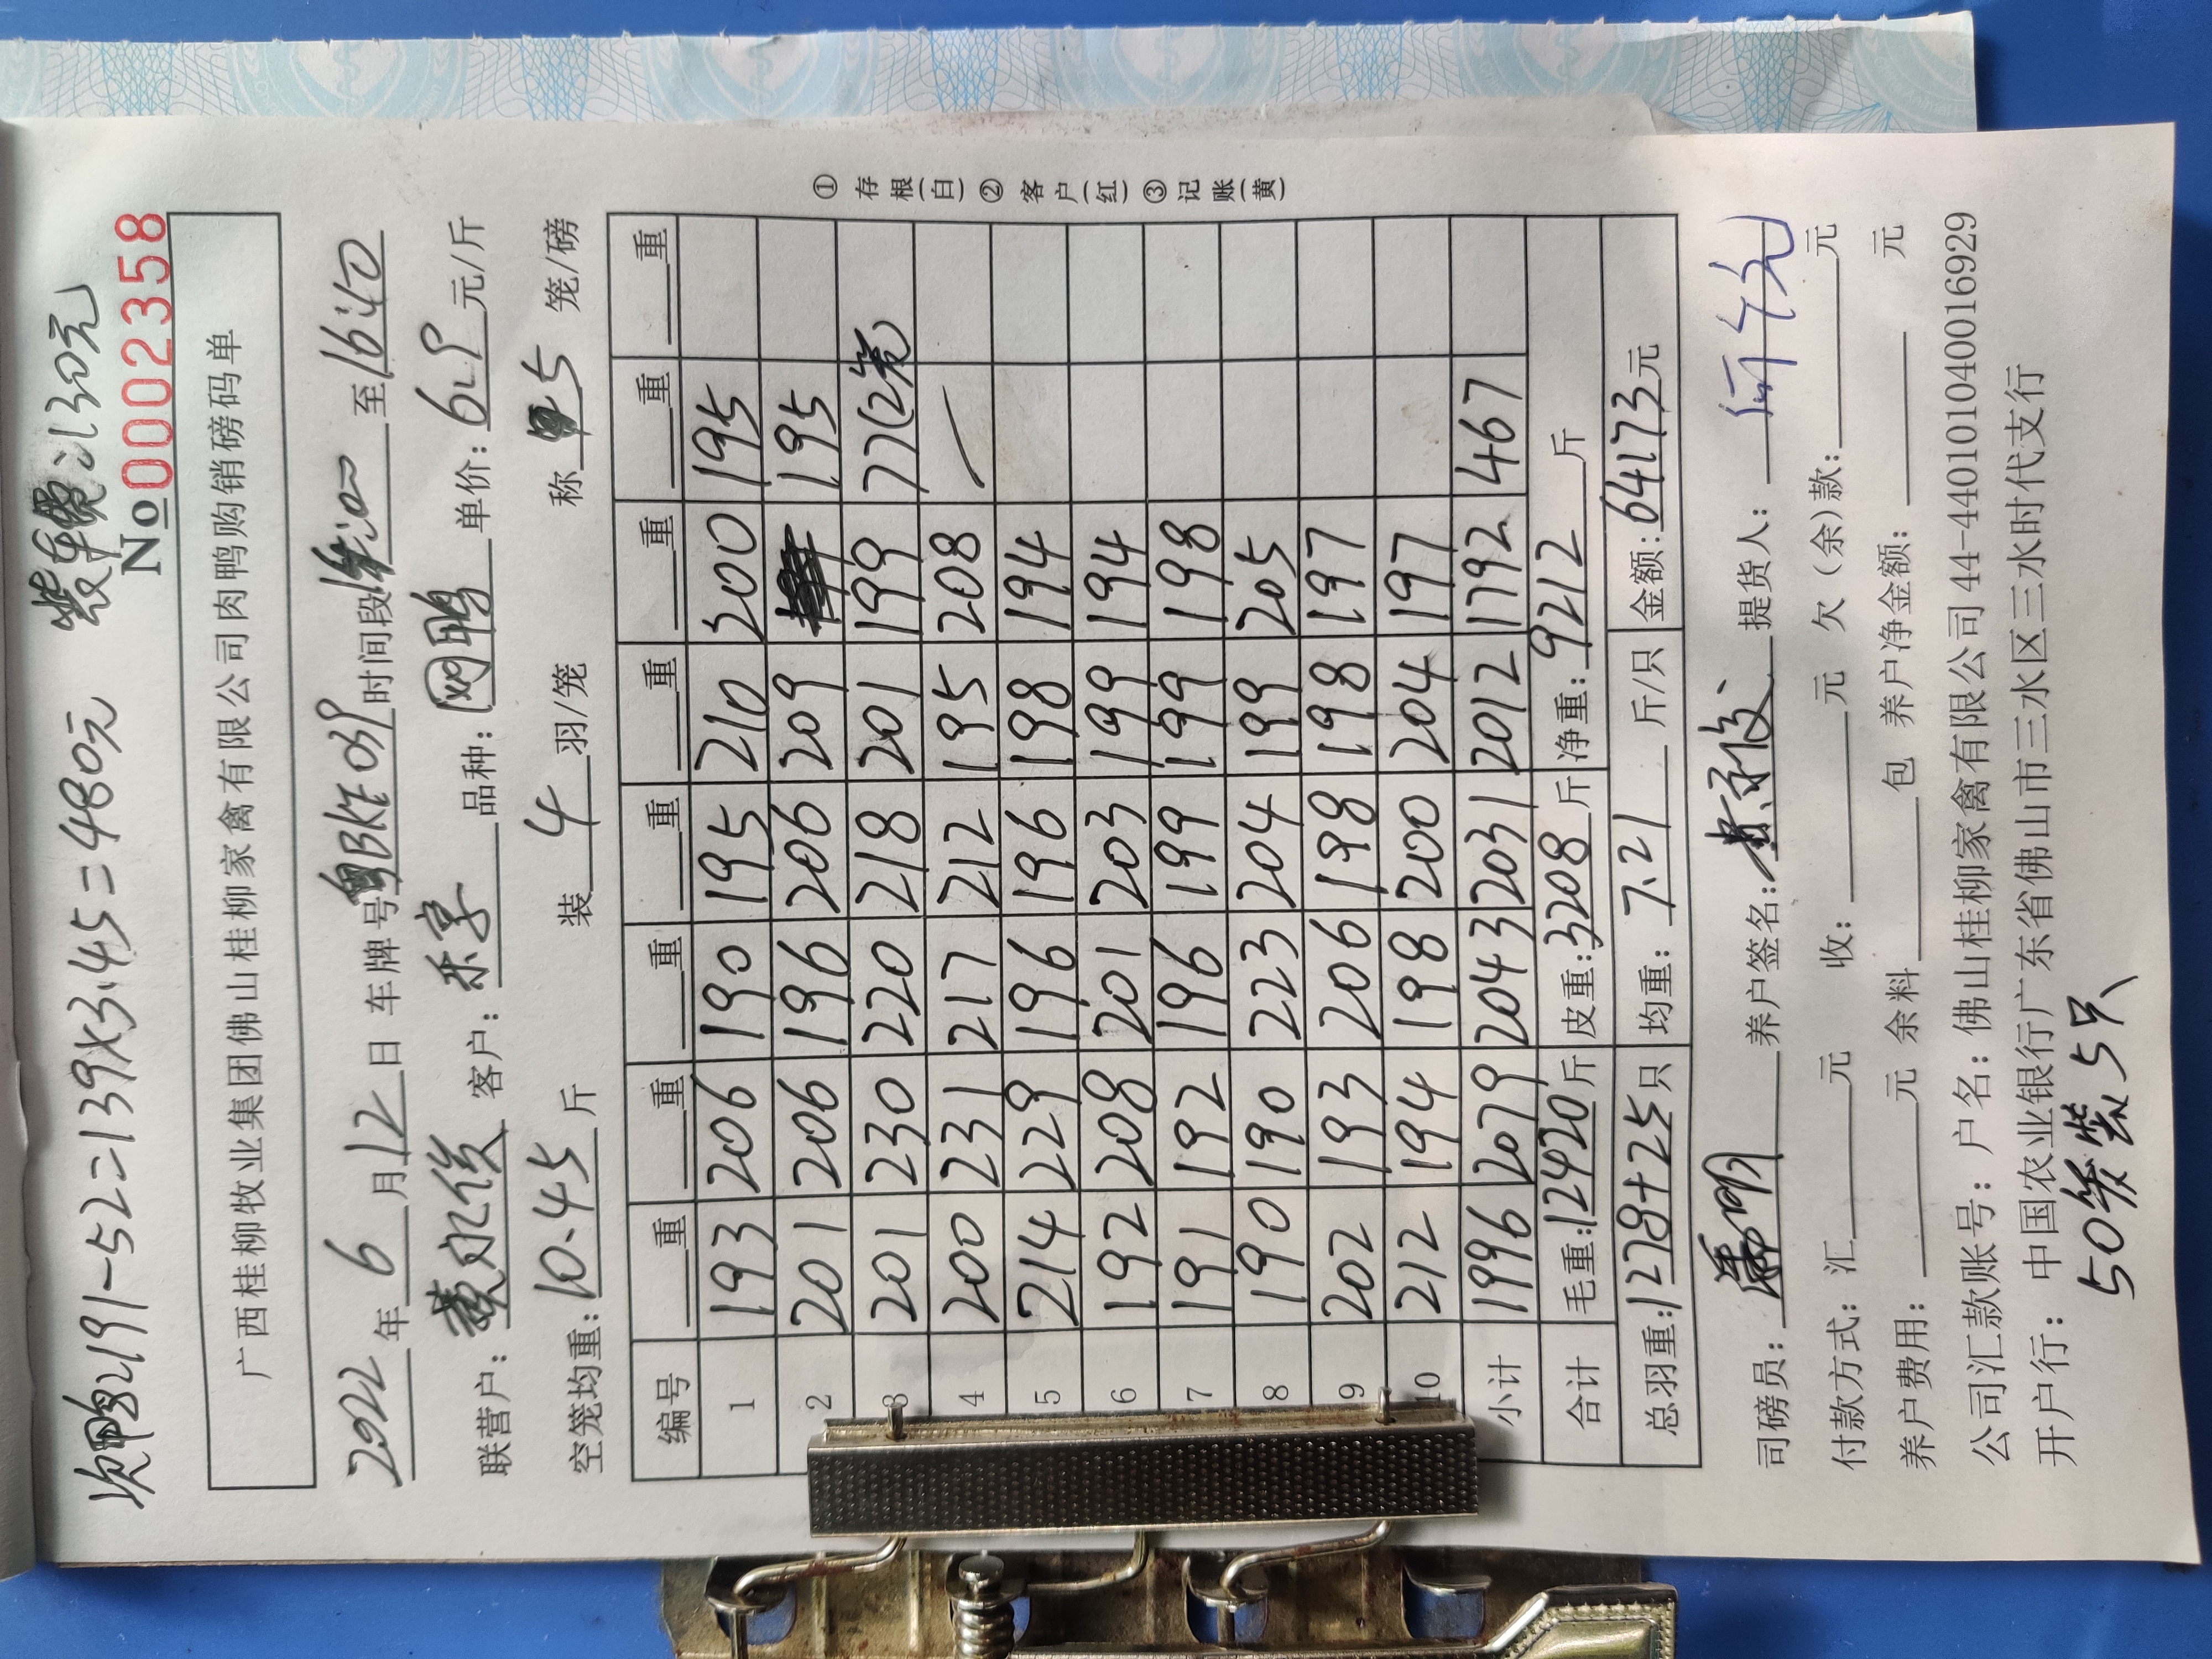 次鸭:191-52=139×3.45=480元 装车费:130元
No 0002358
广西桂柳牧业集团佛山桂柳家禽有限公司肉鸭购销磅码单
2022年6月12日 车牌号粤 时间段 至16:40
联营户:黄永俊 客户:乐享 品种:网鸭 单价:6.9元/斤
空笼均重:10.45斤 装4羽/笼 称5笼/磅
编号 重 重 重 重 重 重 重 重
1 193 206 190 195 210 200 195
2 201 206 196 206 209 195
3 201 230 220 218 201 199 77(2笼)
4 200 231 217 212 195 208
5 214 229 196 196 198 194
6 192 208 201 203 199 194
7 191 192 196 199 199 198
8 190 190 223 204 199 205
9 202 193 206 198 198 197
10 212 194 198 200 204 197
小计 1996 2079 2043 2031 2012 1792 467
合计 毛重:12420斤 皮重:3208斤 净重:9212斤
总羽重:1278+25只 均重:7.21斤/只 金额:64173元
①存根(白)②客户(红)③记账(黄)
司磅员: 养户签名:黄永俊 提货人:
付款方式:汇 元 收: 元 欠(余)款: 元
养户费用: 元 余料 包 养户净金额: 元
公司汇款账号:户名:佛山桂柳家禽有限公司44-440101040016929
开户行:中国农业银行广东省佛山市三水区三水时代支行
50笼装5只